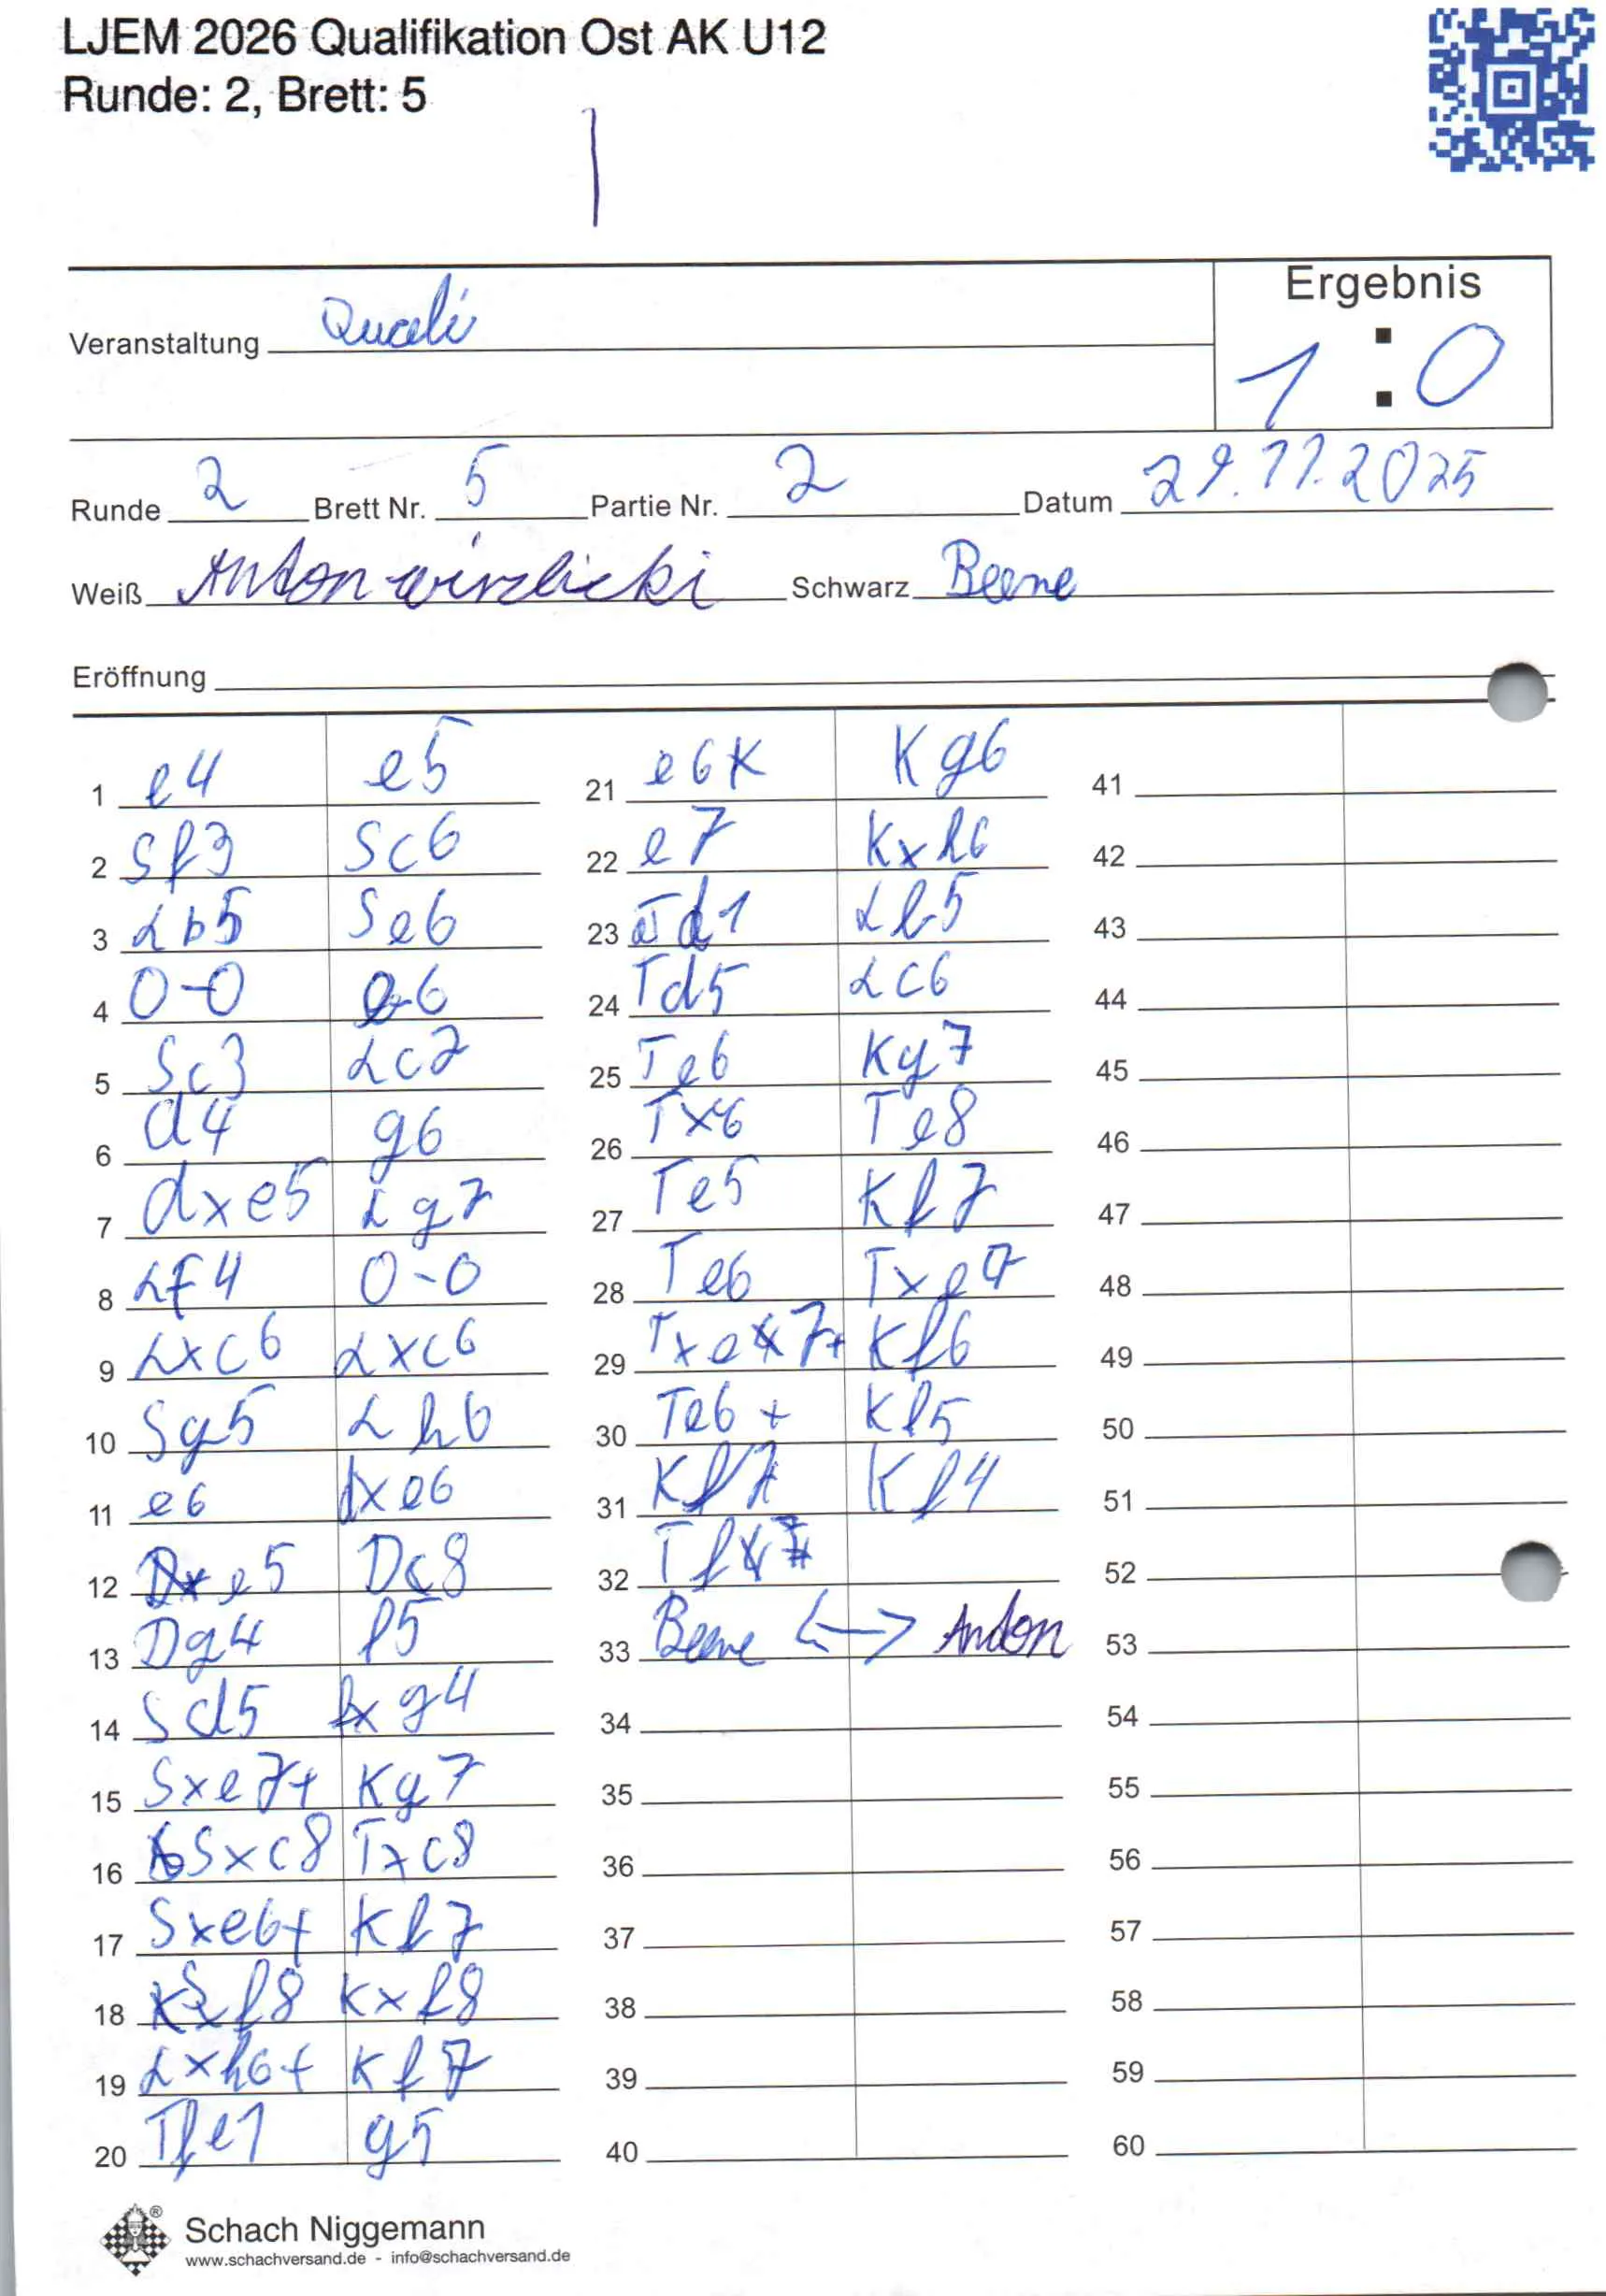 LJEM 2026 Qualifikation Ost AK U12
Runde: 2, Brett: 5
Veranstaltung Quali
Ergebnis
1 : 0
Runde 2 Brett Nr. 5 Partie Nr. 2 Datum 29.11.2025
Weiß Anton Schwarz Beene
Eröffnung
1 e4 e5
2 Sf3 Sc6
3 Lb5 Se6
4 0-0 6
5 Sc3 Lc7
6 d4 g6
7 dxe5 Lg7
8 Lf4 0-0
9 Lxc6 Lxc6
10 Sg5 Lh6
11 e6 dxe6
12 e5 Dc8
13 Dg4 f5
14 Sd5 fxg4
15 Sxe7+ Kg7
16 Sxc8 Txc8
17 Sxe6+ Kf7
18 Sxf8 Kxf8
19 Lxh6+ Kf7
20 Tfe1 g5
21 e6K Kg6
22 e7 Kxh6
23 Td1 Lb5
24 Td5 Lc6
25 Te6 Kg7
26 Tx6 Te8
27 Te5 Kf7
28 Te6 Txe7
29 Txe7+ Kf6
30 Te6+ Kf5
31 Kf1 Kf4
32 Tf4#
33 Beene <-> Anton
34
35
36
37
38
39
40
41
42
43
44
45
46
47
48
49
50
51
52
53
54
55
56
57
58
59
60
Schach Niggemann
www.schachversand.de - info@schachversand.de